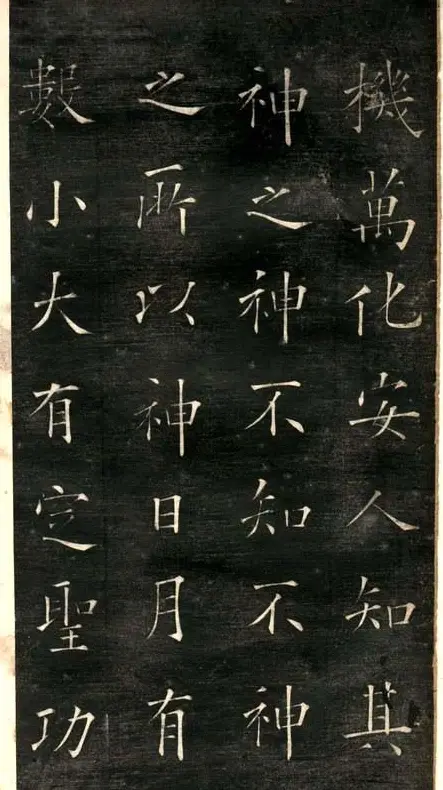 機萬化安人知其
神之神不知不神
之所以神日月有
數小大有定聖功